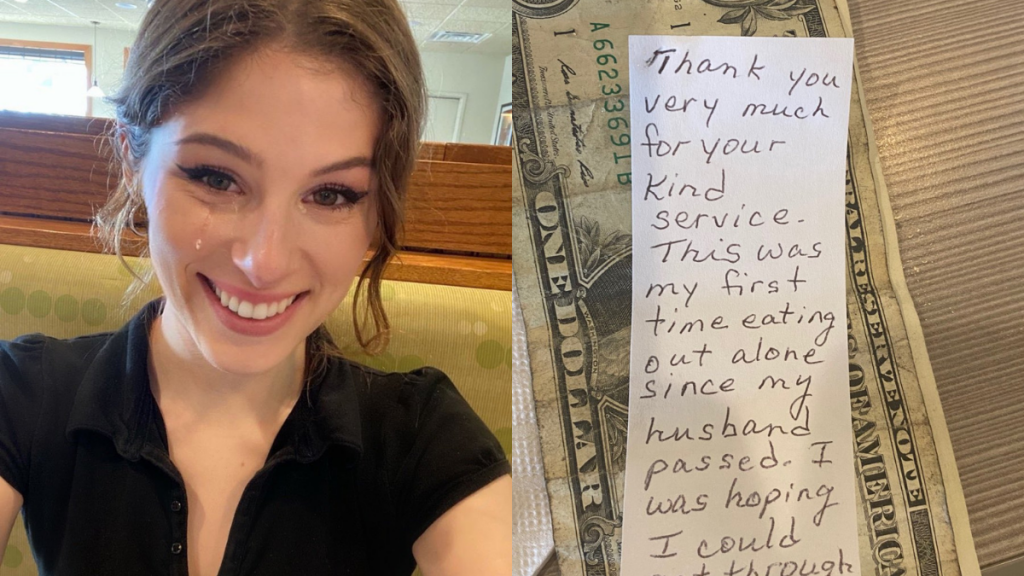 Thank you
very much
for your
kind
service.
This was
my first
time eating
out alone
since my
husband
passed. I
was hoping
I could
through
A66233691B
1
1
ONE DOLLAR
OF AMERICA